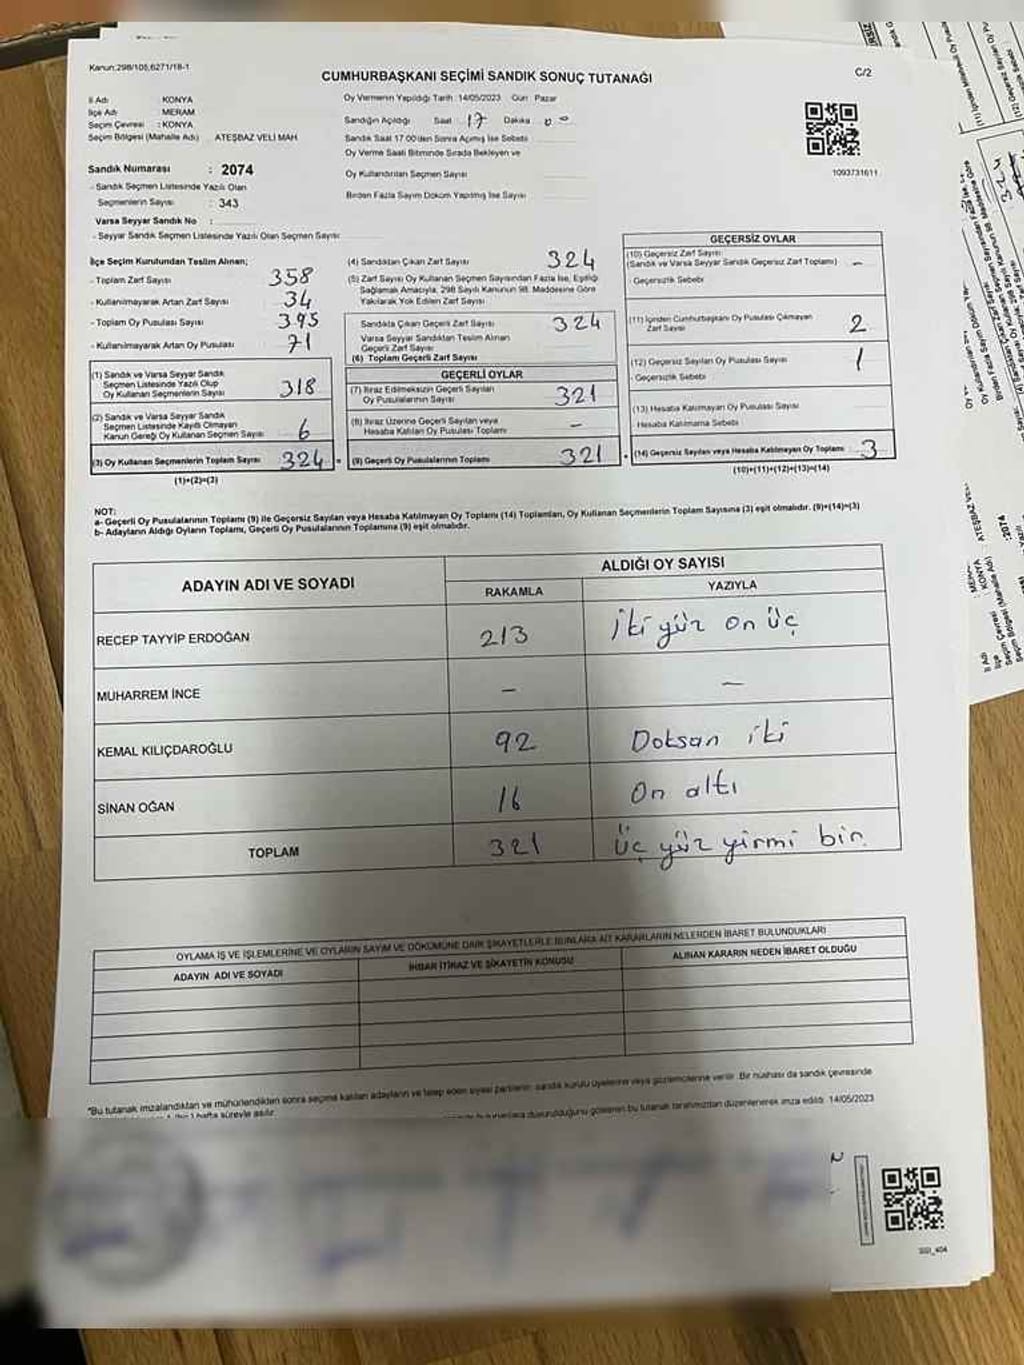 Kanun:298/105,6271/18-1
CUMHURBAŞKANI SEÇİMİ SANDIK SONUÇ TUTANAĞI
C/2
İl Adı KONYA
İlçe Adı MERAM
Seçim Çevresi : KONYA
Seçim Bölgesi (Mahalle Adı) ATEŞBAZ VELİ MAH.
Sandık Numarası : 2074
- Sandık Seçmen Listesinde Yazılı Olan
Seçmenlerin Sayısı : 343
Varsa Seyyar Sandık No :
- Seyyar Sandık Seçmen Listesinde Yazılı Olan Seçmen Sayısı
Oy Vermenin Yapıldığı Tarih :14/05/2023 Gün : Pazar
Sandığın Açıldığı Saat : 17 Dakika 00
Sandık Saat 17.00'den Sonra Açılmış İse Sebebi
Oy Verme Saati Bitiminde Sırada Bekleyen ve
Oy Kullandırılan Seçmen Sayısı
Birden Fazla Sayım Döküm Yapılmış İse Sayısı
1093731611
İlçe Seçim Kurulundan Teslim Alınan;
- Toplam Zarf Sayısı 358
- Kullanılmayarak Artan Zarf Sayısı 34
- Toplam Oy Pusulası Sayısı 395
- Kullanılmayarak Artan Oy Pusulası 71
(1) Sandık ve Varsa Seyyar Sandık
Seçmen Listesinde Yazılı Olup
Oy Kullanan Seçmenlerin Sayısı 318
(2) Sandık ve Varsa Seyyar Sandık
Seçmen Listesinde Kayıtlı Olmayan
Kanun Gereği Oy Kullanan Seçmen Sayısı 6
(3) Oy Kullanan Seçmenlerin Toplam Sayısı 324 =
(1)+(2)=(3)
(4) Sandıktan Çıkan Zarf Sayısı 324
(5) Zarf Sayısı Oy Kullanan Seçmen Sayısından Fazla İse, Eşitliği
Sağlamak Amacıyla, 298 Sayılı Kanunun 98. Maddesine Göre
Yakılarak Yok Edilen Zarf Sayısı
Sandıkta Çıkan Geçerli Zarf Sayısı 324
Varsa Seyyar Sandıktan Teslim Alınan
Geçerli Zarf Sayısı
(6) Toplam Geçerli Zarf Sayısı
GEÇERLİ OYLAR
(7) İtiraz Edilmeksizin Geçerli Sayılan
Oy Pusulalarının Sayısı 321
(8) İtiraz Üzerine Geçerli Sayılan veya
Hesaba Katılan Oy Pusulası Toplamı -
(9) Geçerli Oy Pusulalarının Toplamı 321 +
GEÇERSİZ OYLAR
(10) Geçersiz Zarf Sayısı
(Sandık ve Varsa Seyyar Sandık Geçersiz Zarf Toplamı) -
- Geçersizlik Sebebi
(11) İçinden Cumhurbaşkanı Oy Pusulası Çıkmayan
Zarf Sayısı 2
(12) Geçersiz Sayılan Oy Pusulası Sayısı 1
- Geçersizlik Sebebi
(13) Hesaba Katılmayan Oy Pusulası Sayısı
Hesaba Katılmama Sebebi
(14) Geçersiz Sayılan veya Hesaba Katılmayan Oy Toplamı 3
(10)+(11)+(12)+(13)=(14)
NOT:
a- Geçerli Oy Pusulalarının Toplamı (9) ile Geçersiz Sayılan veya Hesaba Katılmayan Oy Toplamı (14) Toplamları, Oy Kullanan Seçmenlerin Toplam Sayısına (3) eşit olmalıdır. (9)+(14)=(3)
b- Adayların Aldığı Oyların Toplamı, Geçerli Oy Pusulalarının Toplamına (9) eşit olmalıdır.
ADAYIN ADI VE SOYADI
ALDIĞI OY SAYISI
RAKAMLA YAZIYLA
RECEP TAYYİP ERDOĞAN 213 İki yüz on üç
MUHARREM İNCE - -
KEMAL KILIÇDAROĞLU 92 Doksan iki
SİNAN OĞAN 16 On altı
TOPLAM 321 Üç yüz yirmi bir.
OYLAMA İŞ VE İŞLEMLERİNE VE OYLARIN SAYIM VE DÖKÜMÜNE DAİR ŞİKAYETLERLE BUNLARA AİT KARARLARIN NELERDEN İBARET BULUNDUKLARI
ADAYIN ADI VE SOYADI İHBAR İTİRAZ VE ŞİKAYETİN KONUSU ALINAN KARARIN NEDEN İBARET OLDUĞU
*Bu tutanak imzalandıktan ve mühürlendikten sonra seçime katılan adayların ve talep eden siyasi partilerin sandık kurulu üyelerine veya gözlemcilerine verilir. Bir nüshası da sandık çevresinde
hafta süreyle asılır.
duyurulduğunu gösteren bu tutanak tarafımızdan düzenlenerek imza edildi. 14/05/2023